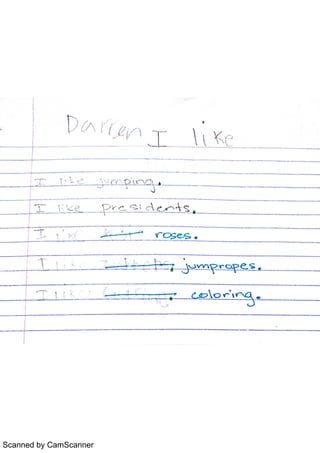 Darren I like
I like jumping.
I like presidents.
I like roses.
I like jumpropes.
I like coloring.
Scanned by CamScanner